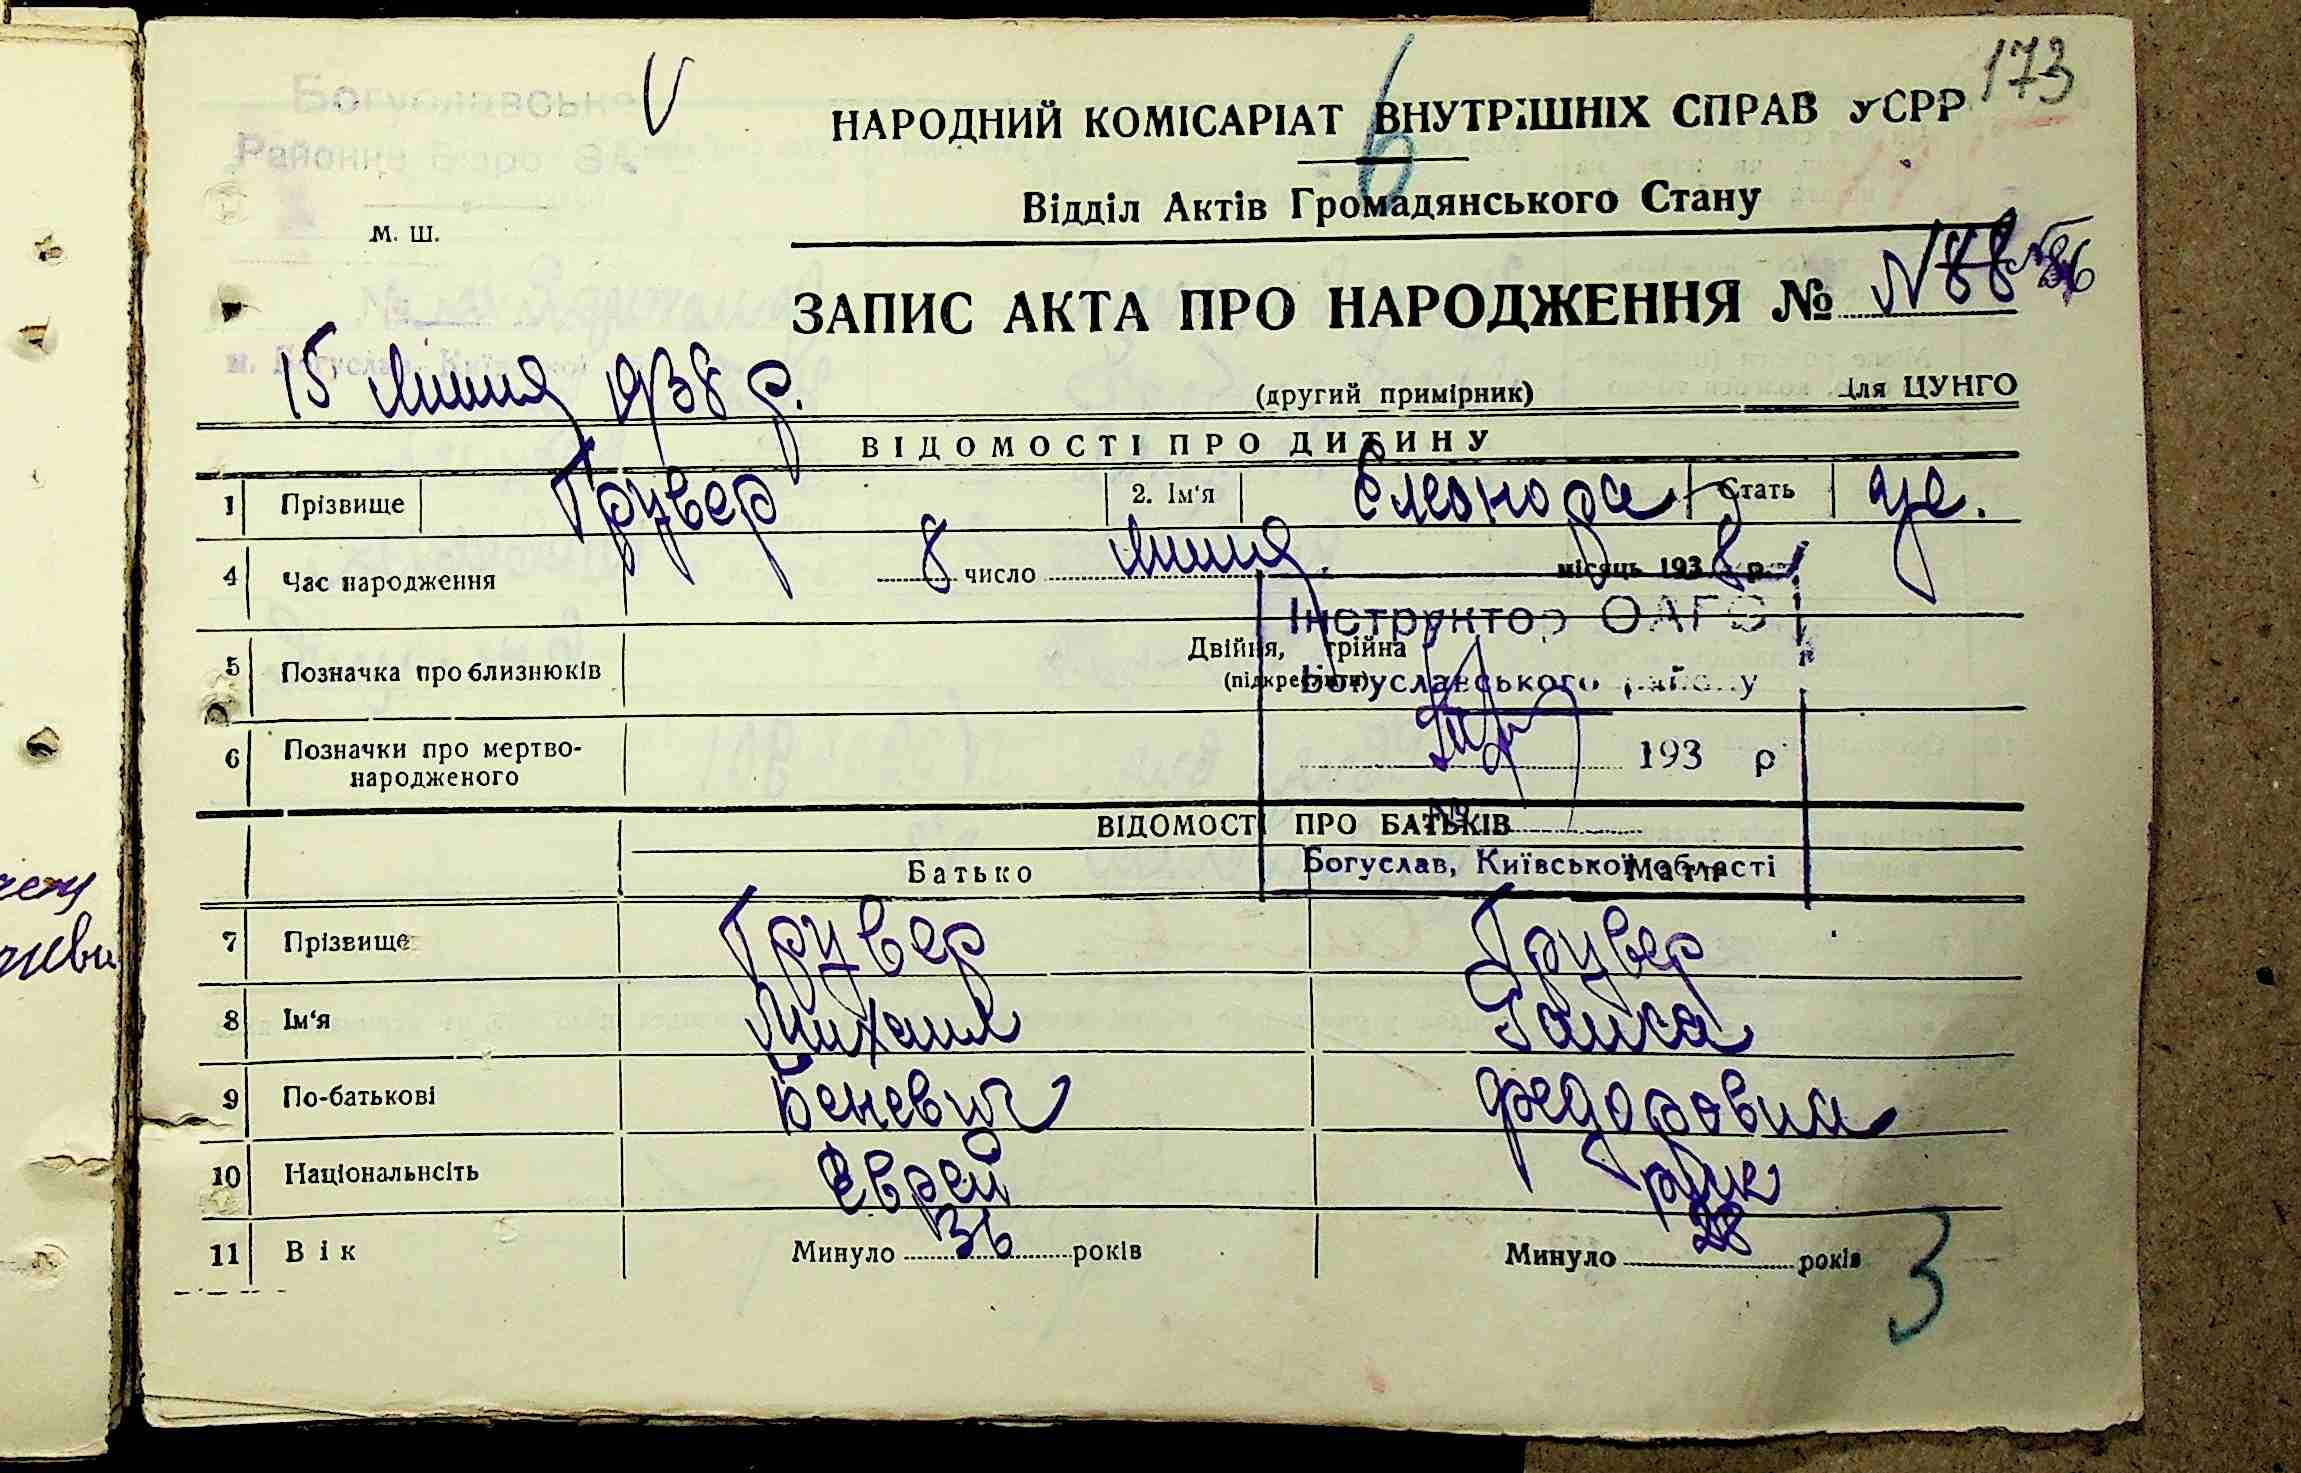 173
Богуславське
Районне Бюро ЗАГС
НАРОДНИЙ КОМІСАРІАТ ВНУТРІШНІХ СПРАВ УСРР
6
Відділ Актів Громадянського Стану
м. ш.
ЗАПИС АКТА ПРО НАРОДЖЕННЯ № N 88 №86
15 липня 1938 р.
(другий примірник) Для ЦУНГО
ВІДОМОСТІ ПРО ДИТИНУ
1 Прізвище Грувер 2. Ім'я Елеонора Стать
4 Час народження 8 число липня місяць 1938 р.
Інструктор ОАГС
5 Позначка про близнюків Двійня, трійня
(підкреслити)
Богуславського району
6 Позначки про мертво-
народженого
193 р
ВІДОМОСТІ ПРО БАТЬКІВ
№
Батько Мати
Богуслав, Київської області
7 Прізвище Грувер Грувер
8 Ім'я Михаил
9 По-батькові Беневич Федоровна
10 Національнсіть Еврей
11 Вік Минуло 36 років Минуло 28 років
3